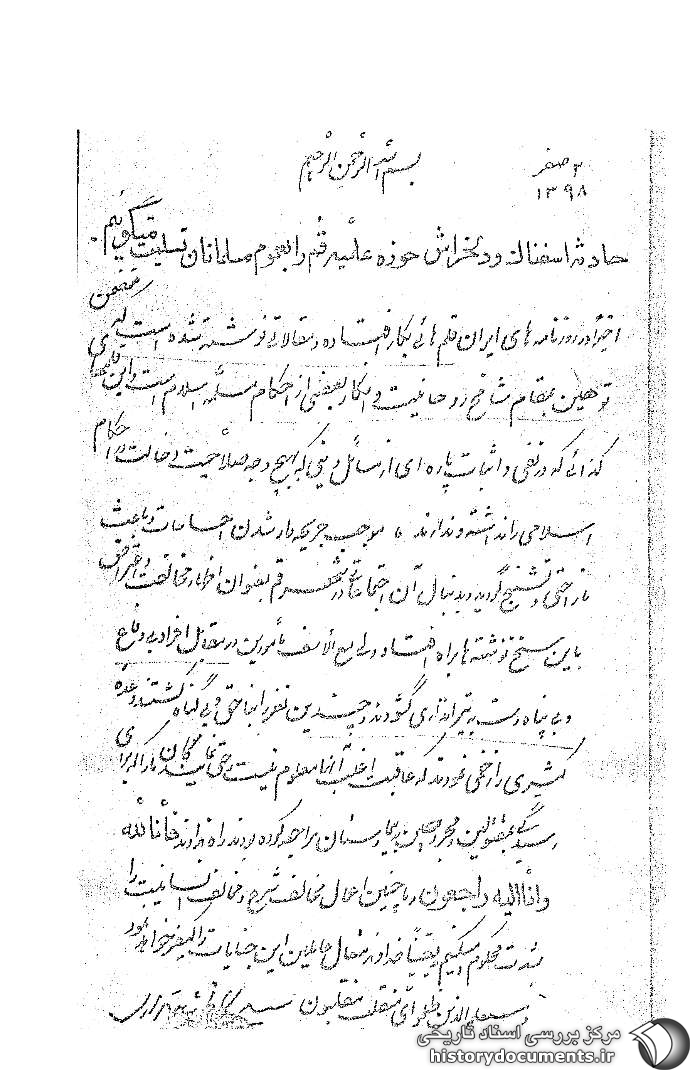 بسم الله الرحمن الرحیم
۳ صفر
۱۳۹۸
حادثه اسفناک و دلخراش حوزه علمیه قم را بعموم مسلمانان تسلیت میگویم.
اخیراً در روزنامه های ایران قلم هائی بکار افتاده و مقالاتی نوشته شده است که متضمن
توهین بمقام شامخ روحانیت و انکار بعضی از احکام مسلمه اسلام است و این قلمهای
کذائی که در نفی و اثبات پاره ای از مسائل دینی که بهیچ وجه صلاحیت دخالت در احکام
اسلامی را نداشته و ندارند، موجب جریحه دار شدن احساسات و باعث
ناراحتی و تشنج گردید و بدنبال آن اجتماعاتی در شهر قم بعنوان اظهار مخالفت و اعتراض
باین سنخ نوشته ها براه افتاد ولی مع الاسف مأمورین در مقابل افراد بی دفاع
و بی پناه دست به تیراندازی گشودند و چندین نفر را بناحق و بی گناه کشتند و عده
کثیری را زخمی نمودند که عاقبت اغلب آنها معلوم نیست حتی نمایندگان ما را که برای
رسیدگی بمقتولین و مجروحین به بیمارستان مراجعه کرده بودند راه ندادند فانا لله
و انا الیه راجعون ما چنین اعمال مخالف شرع و مخالف انسانیت را
بشدت محکوم میکنیم یقیناً خداوند متعال عاملین این جنایات را کیفر خواهد نمود
و سیعلم الذین ظلموا ای منقلب ینقلبون سید کاظم شریعتمداری
مرکز بررسی اسناد تاریخی
historydocuments.ir